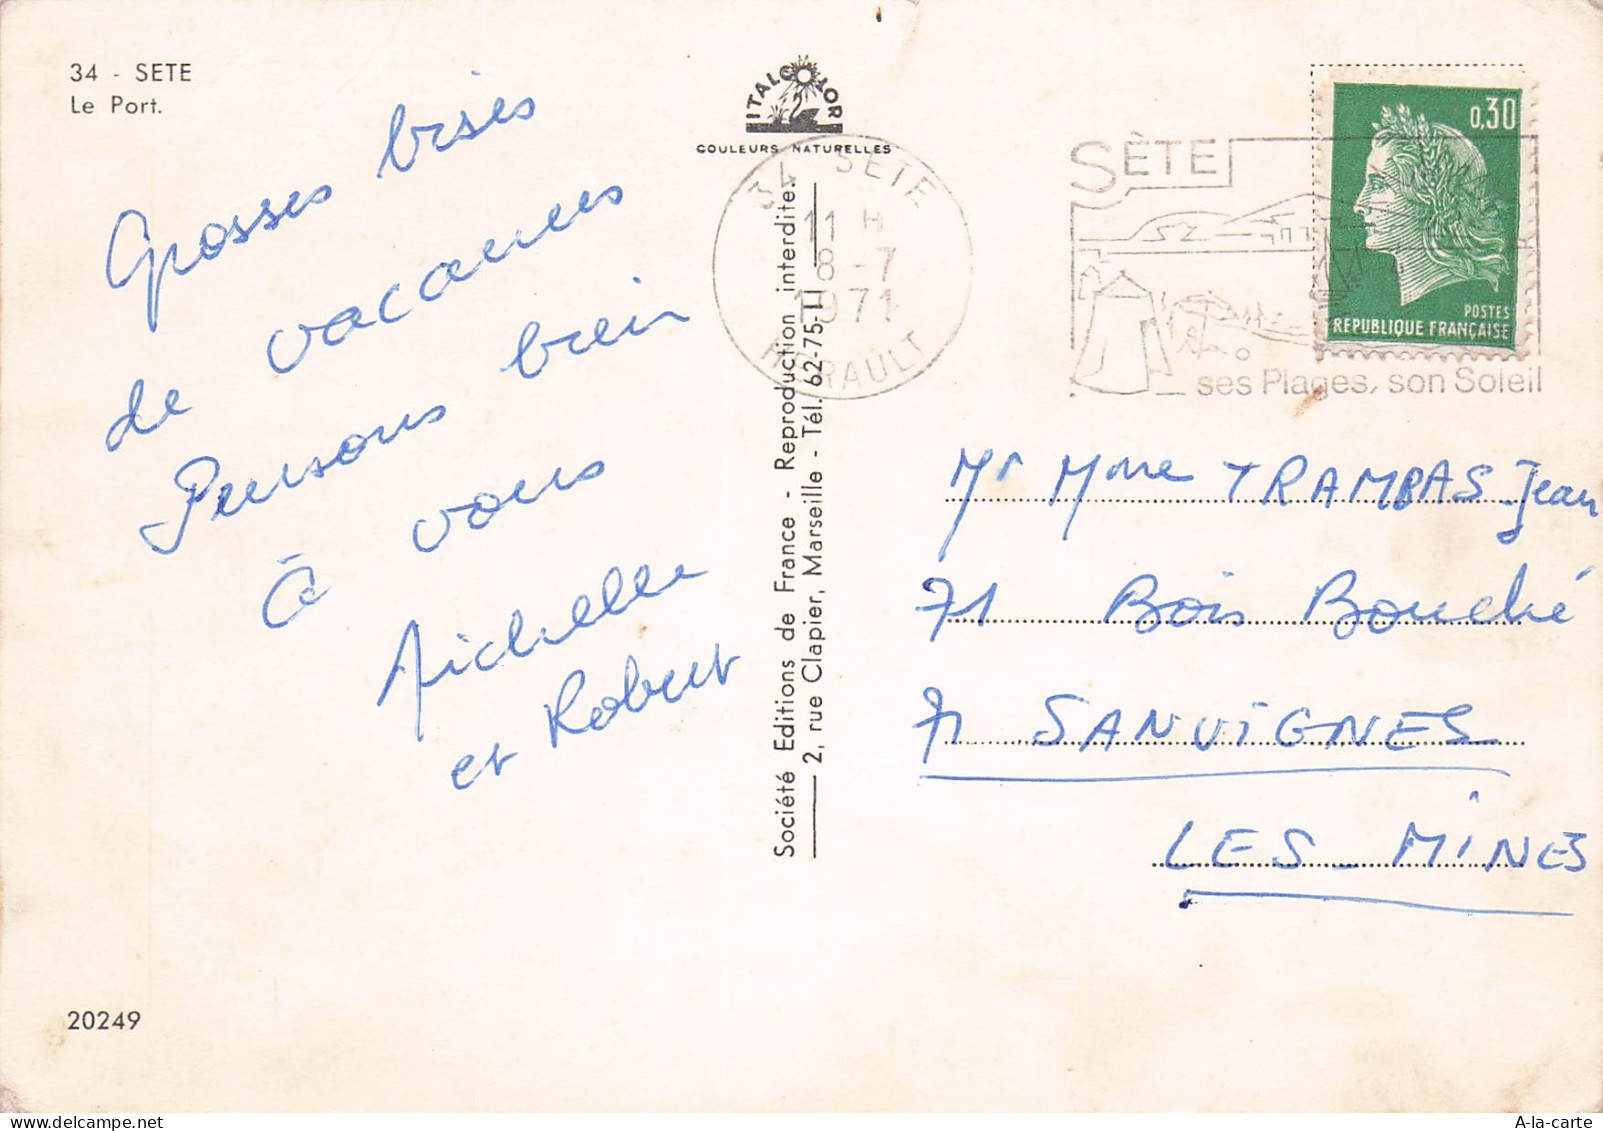 34 - SETE
Le Port.
ITALCOLOR
COULEURS NATURELLES
Grosses bises
de vacances
Pensons bien
à vous
Michelle
et Robert
20249
Société Editions de France - Reproduction interdite.
2, rue Clapier, Marseille - Tél. 62-75-11
34 SETE
11 H
8 -7
1971
HERAULT
SÈTE
ses Plages, son Soleil
0,30
POSTES
REPUBLIQUE FRANÇAISE
Mr Mme TRAMBAS Jean
71 Bois Bouché
71 SANVIGNES
LES MINES
A-la-carte